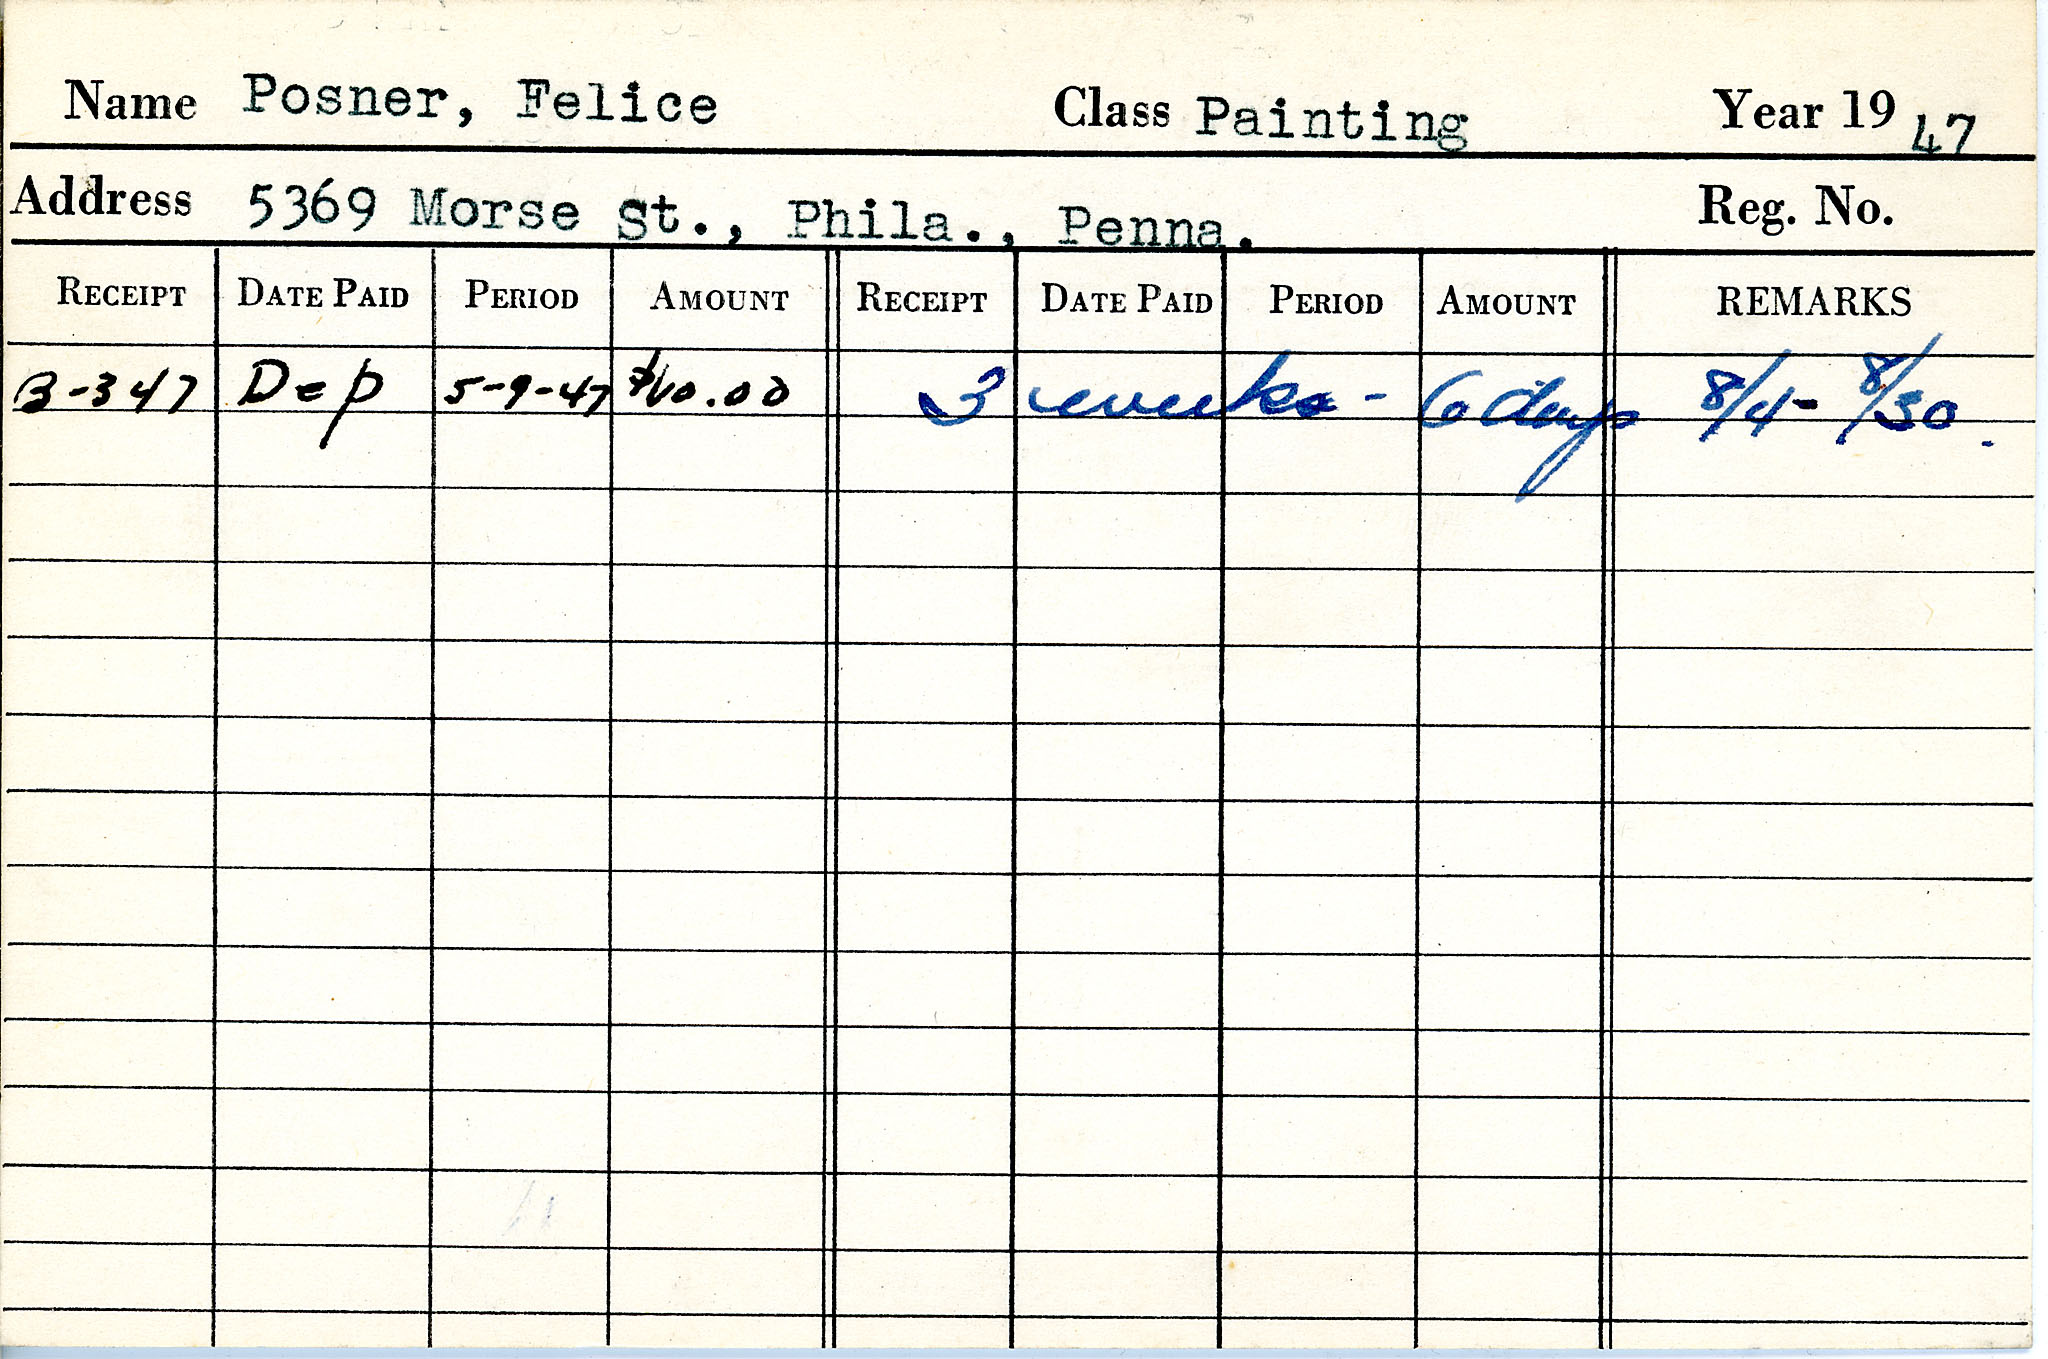 Name Posner, Felice Class Painting Year 19 47
Address 5369 Morse St., Phila., Penna. Reg. No.
RECEIPT DATE PAID PERIOD AMOUNT RECEIPT DATE PAID PERIOD AMOUNT REMARKS
B-347 Dep 5-9-47 $10.00 3 weeks - 6 days 8/4 - 8/30.